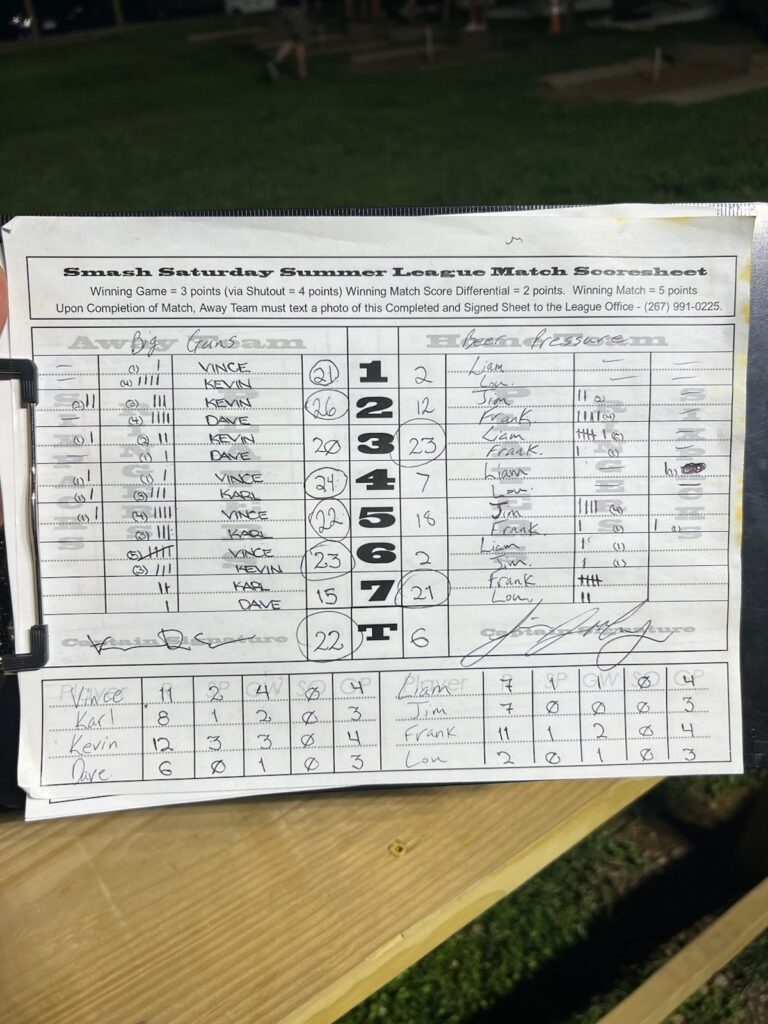 Smash Saturday Summer League Match Scoresheet
Winning Game = 3 points (via Shutout = 4 points) Winning Match Score Differential = 2 points. Winning Match = 5 points
Upon Completion of Match, Away Team must text a photo of this Completed and Signed Sheet to the League Office - (267) 991-0225.
Away Team Big Guns Home Team Beer Pressure
— (1) I VINCE 21 1 2 Liam — —
— (4) IIII KEVIN Lou — —
(2) II (3) III KEVIN 26 2 12 Jim II (2)
— (4) IIII DAVE Frank IIII (4)
(1) I (2) II KEVIN 20 3 23 Liam
— (1) I DAVE Frank I
(1) I (1) I VINCE 24 4 7 Liam —
(1) I (3) III KARL Lou —
(1) I (4) IIII VINCE 22 5 18 Jim IIII (4)
(3) III KARL Frank I I
(5) IIIII VINCE 23 6 2 Liam I (1)
(3) III KEVIN Jim I (1)
II KARL 15 7 21 Frank IIIII
I DAVE Lou II
Captain Signature 22 T 6 Captain Signature
Vince 11 2 4 Ø 4 Liam 7 1 1 Ø 4
Karl 8 1 2 Ø 3 Jim 7 Ø Ø Ø 3
Kevin 12 3 3 Ø 4 Frank 11 1 2 Ø 4
Dave 6 Ø 1 Ø 3 Lou 2 Ø 1 Ø 3